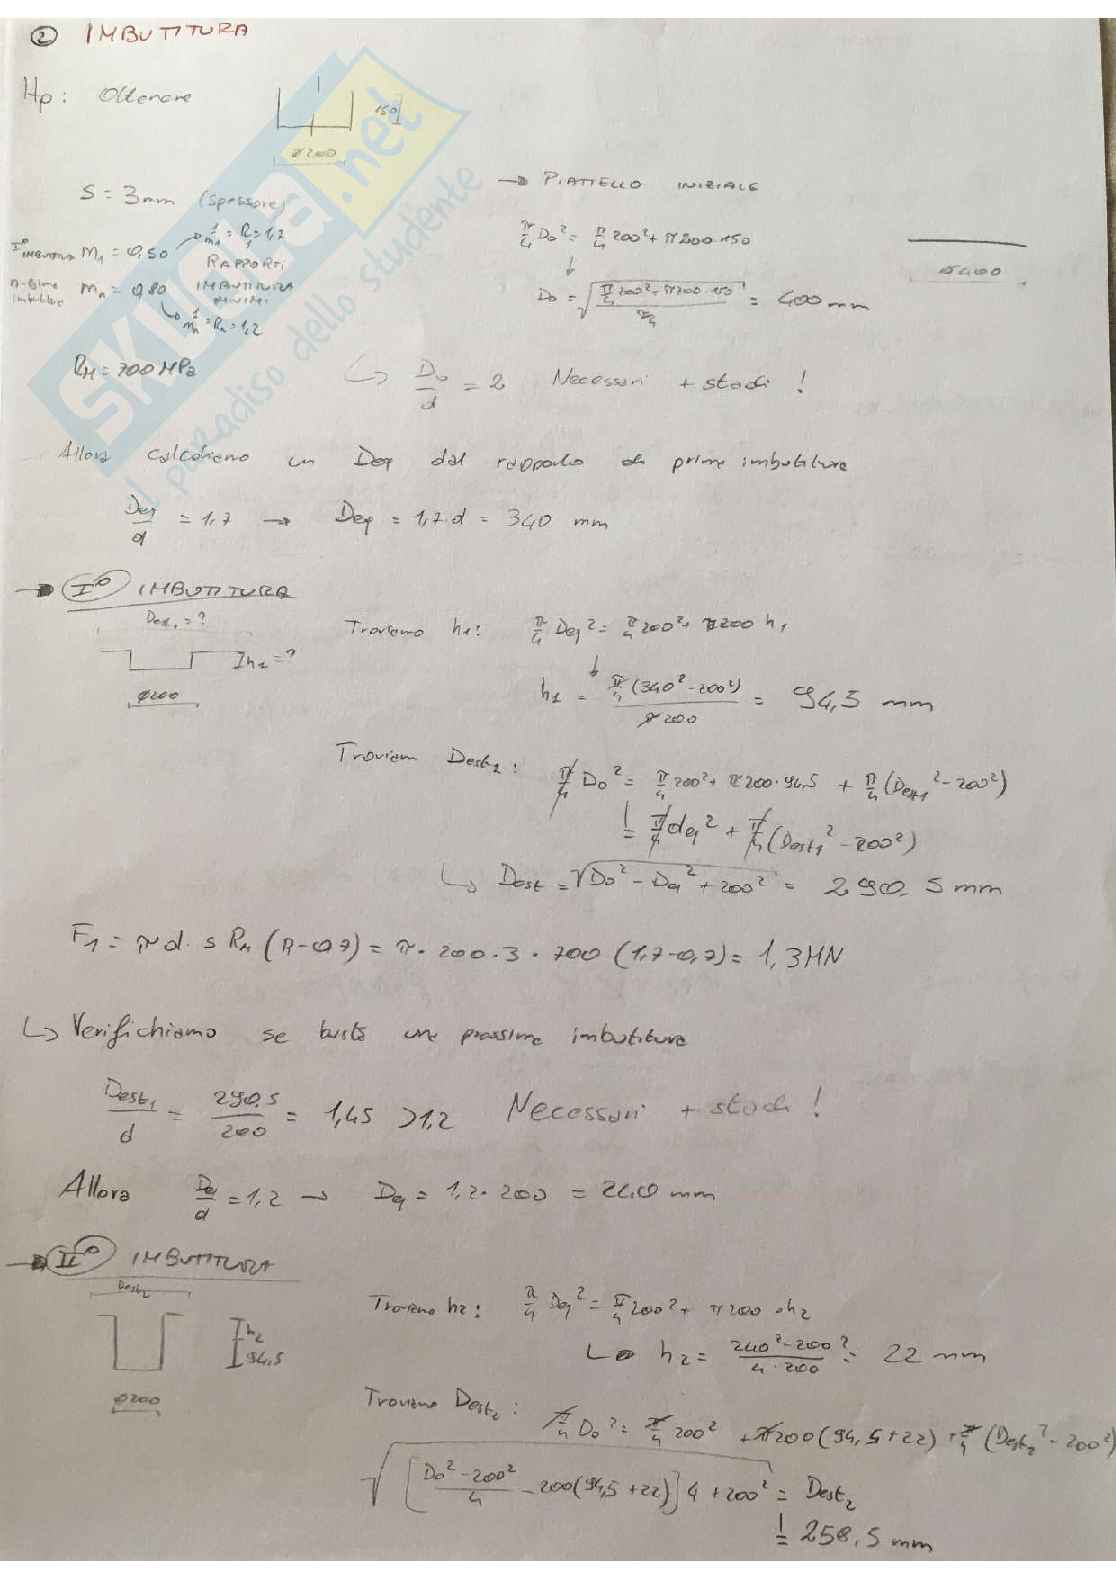 ② IMBUTITURA
Hp: Ottenere
150
ø200
S = 3mm (spessore)
→ PIATTELLO INIZIALE
I° IMBUTITURA m₁ = 0,50
RAPPORTI IMBUTITURA MINIMI
mₙ = 0,80
1/mₙ = Rₙ = 1,2
π/4 D₀² = π/4 200² + π 200·150
ø400
D₀ = √((π/4 200² + π 200·150)/(π/4)) = 400 mm
R_M = 700 MPa
↳ D₀/d = 2 Necessari + stadi !
Allora calcoliamo un Deq dal rapporto di prima imbutitura
Deq/d = 1,7 → Deq = 1,7·d = 340 mm
→ I° IMBUTITURA
Dest₁ = ?
h₁ = ?
ø200
Troviamo h₁: π/4 Deq² = π/4 200² + π 200 h₁
h₁ = (π/4 (340² - 200²))/(π 200) = 94,5 mm
Troviam Dest₁: π/4 D₀² = π/4 200² + π 200·94,5 + π/4 (Dest₁² - 200²)
= π/4 deq² + π/4 (Dest₁² - 200²)
↳ Dest = √(D₀² - Deq² + 200²) = 290,5 mm
F₁ = π d · s R_M (R - 0,7) = π · 200 · 3 · 700 (1,7 - 0,7) = 1,3 MN
↳ Verifichiamo se basta una prossima imbutitura
Dest₁/d = 290,5/200 = 1,45 > 1,2 Necessari + stadi !
Allora Deq/d = 1,2 → Deq = 1,2 · 200 = 240 mm
→ II° IMBUTITURA
Dest₂
h₂
94,5
ø200
Troviamo h₂: π/4 Deq² = π/4 200² + π 200 · h₂
↳ h₂ = (240² - 200²)/(4·200) = 22 mm
Troviamo Dest₂: π/4 D₀² = π/4 200² + π 200 (94,5 + 22) + π/4 (Dest₂² - 200²)
√([(D₀² - 200²)/4 - 200 (94,5 + 22)] 4 + 200²) = Dest₂
= 258,5 mm
SKUOLA.net
il paradiso dello studente